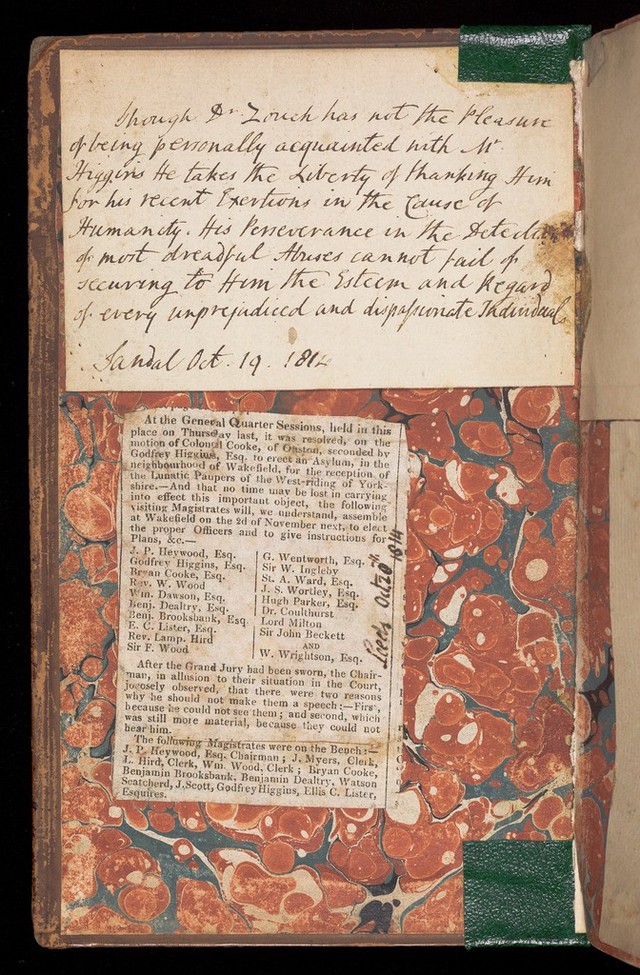 Though Dr Zouch has not the Pleasure
of being personally acquainted with Mr.
Higgins He takes the Liberty of thanking Him
for his recent Exertions in the Cause of
Humanity. His Perseverance in the Detection
of most dreadful Abuses cannot fail of
securing to Him the Esteem and Regard
of every unprejudiced and dispassionate Individual
Sandal Oct. 19. 1814
At the General Quarter Sessions, held in this
place on Thursday last, it was resolved, on the
motion of Colonel Cooke, of Owston, seconded by
Godfrey Higgins, Esq. to erect an Asylum, in the
neighbourhood of Wakefield, for the reception of
the Lunatic Paupers of the West-riding of York-
shire.—And that no time may be lost in carrying
into effect this important object, the following
visiting Magistrates will, we understand, assemble
at Wakefield on the 2d of November next, to elect
the proper Officers and to give instructions for
Plans, &c.—
J. P. Heywood, Esq.
Godfrey Higgins, Esq.
Bryan Cooke, Esq.
Rev. W. Wood
Wm. Dawson, Esq.
Benj. Dealtry, Esq.
Benj. Brooksbank, Esq.
E. C. Lister, Esq.
Rev. Lamp. Hird
Sir F. Wood
G. Wentworth, Esq.
Sir W. Ingleby
St. A. Ward, Esq.
J. S. Wortley, Esq.
Hugh Parker, Esq.
Dr. Coulthurst
Lord Milton
Sir John Beckett
AND
W. Wrightson, Esq.
Leeds Octr 20th 1814
After the Grand Jury had been sworn, the Chair-
man, in allusion to their situation in the Court,
jocosely observed, that there were two reasons
why he should not make them a speech:—First
because he could not see them; and second, which
was still more material, because they could not
hear him.
The following Magistrates were on the Bench:—
J. P. Heywood, Esq. Chairman; J. Myers, Clerk,
L. Hird, Clerk, Wm. Wood, Clerk; Bryan Cooke,
Benjamin Brooksbank, Benjamin Dealtry, Watson
Scatcherd, J. Scott, Godfrey Higgins, Ellis C. Lister,
Esquires.